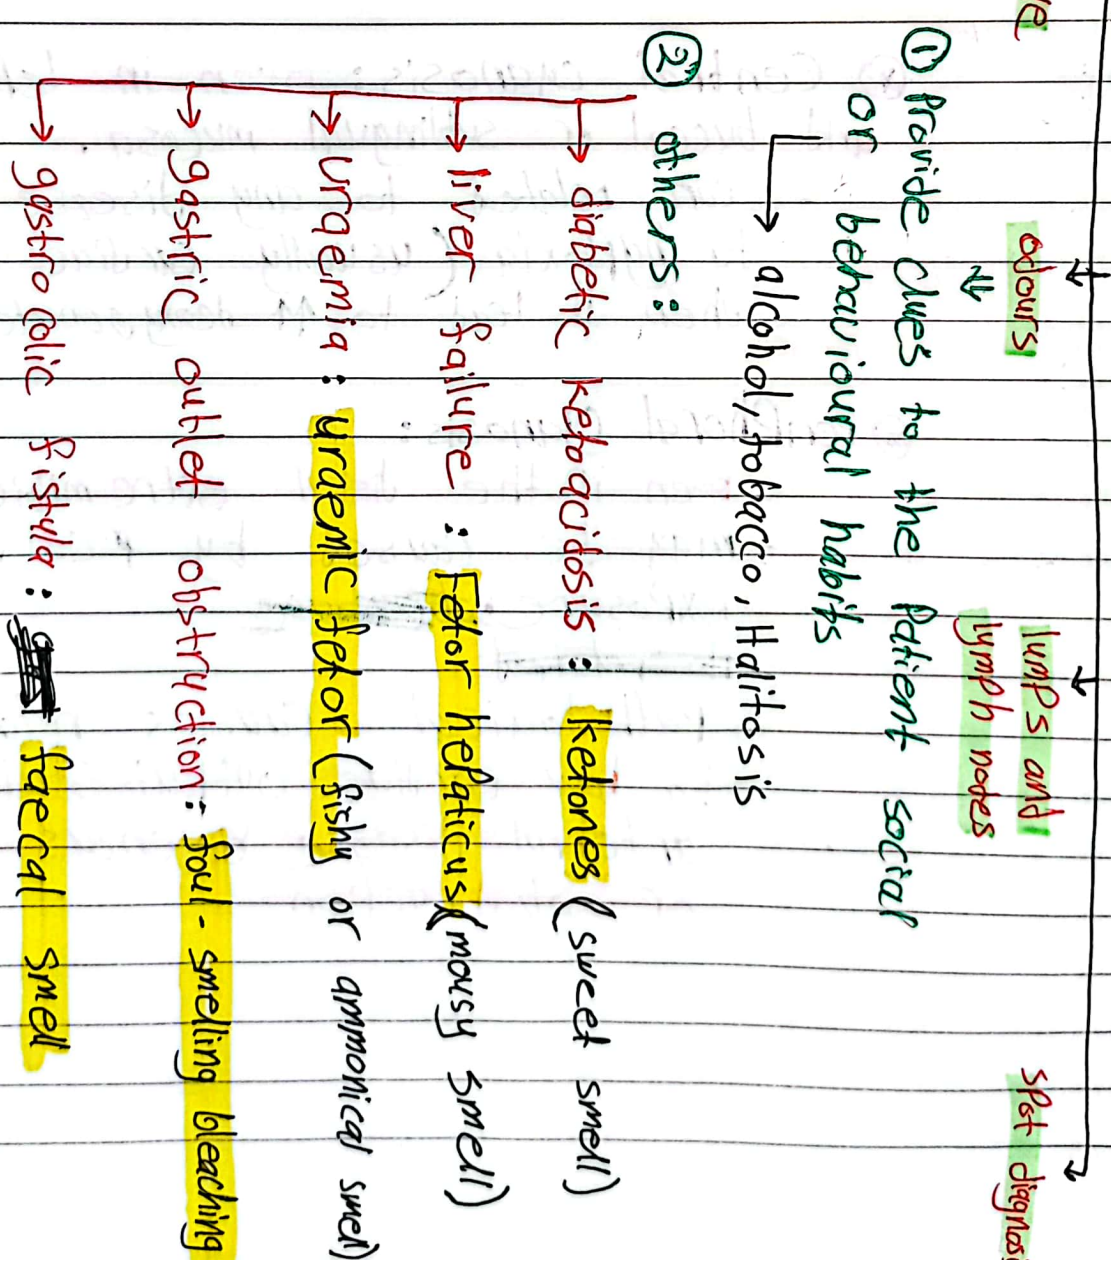 odours
lumps and
lymph nodes
spot diagnos
① Provide clues to the Patient social
or behavioural habits
alcohol, tobacco, Halitosis
② others:
diabetic ketoacidosis: ketones (sweet smell)
liver failure : Fetor hepaticus (mousy smell)
uraemia: uraemic fetor (fishy or ammonical smell)
gastric outlet obstruction: foul-smelling bleaching
gastro colic fistula: faecal smell